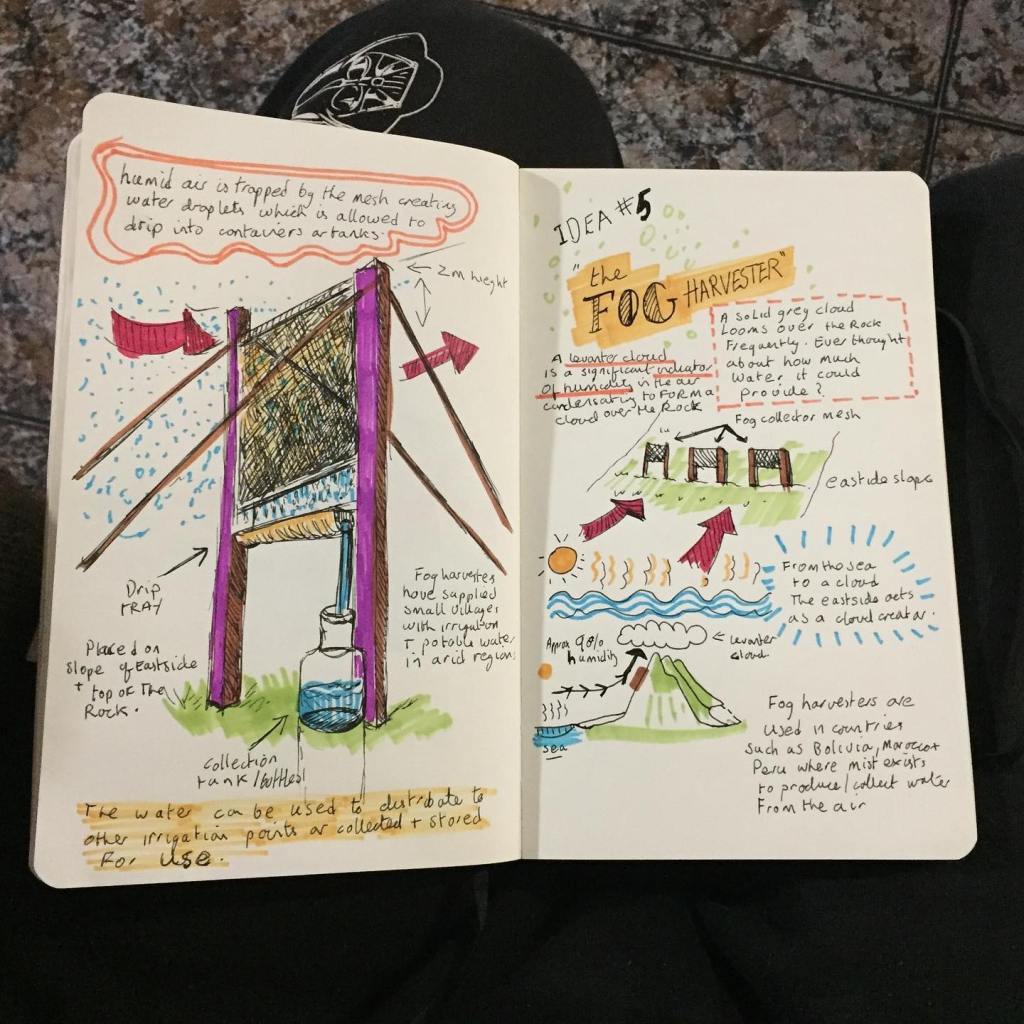 humid air is trapped by the mesh creating
water droplets which is allowed to
drip into containers or tanks.
2m hieght
Drip
TRAY
Placed on
slope of Eastside
+ top of The
Rock.
Fog harvesters
have supplied
small villages
with irrigation
+ potable water
in arid regions
collection
tank/bottles
The water can be used to distribute to
other irrigation points or collected + stored
For use.
IDEA #5
"the
FOG HARVESTER"
A solid grey cloud
Looms over the Rock
Frequently. Ever thought
about how much
water it could
provide?
A levanter cloud
is a significant indicator
of humidity in the air
condensating to FORM a
cloud over the Rock
Fog collector mesh
eastside slope
From the sea
to a cloud
The eastside acts
as a cloud creator.
Approx 98%
humidity
levanter
cloud
sea
Fog harvesters are
used in countries
such as Bolivia, Morocco +
Peru where mist exists
to produce/collect water
From the air